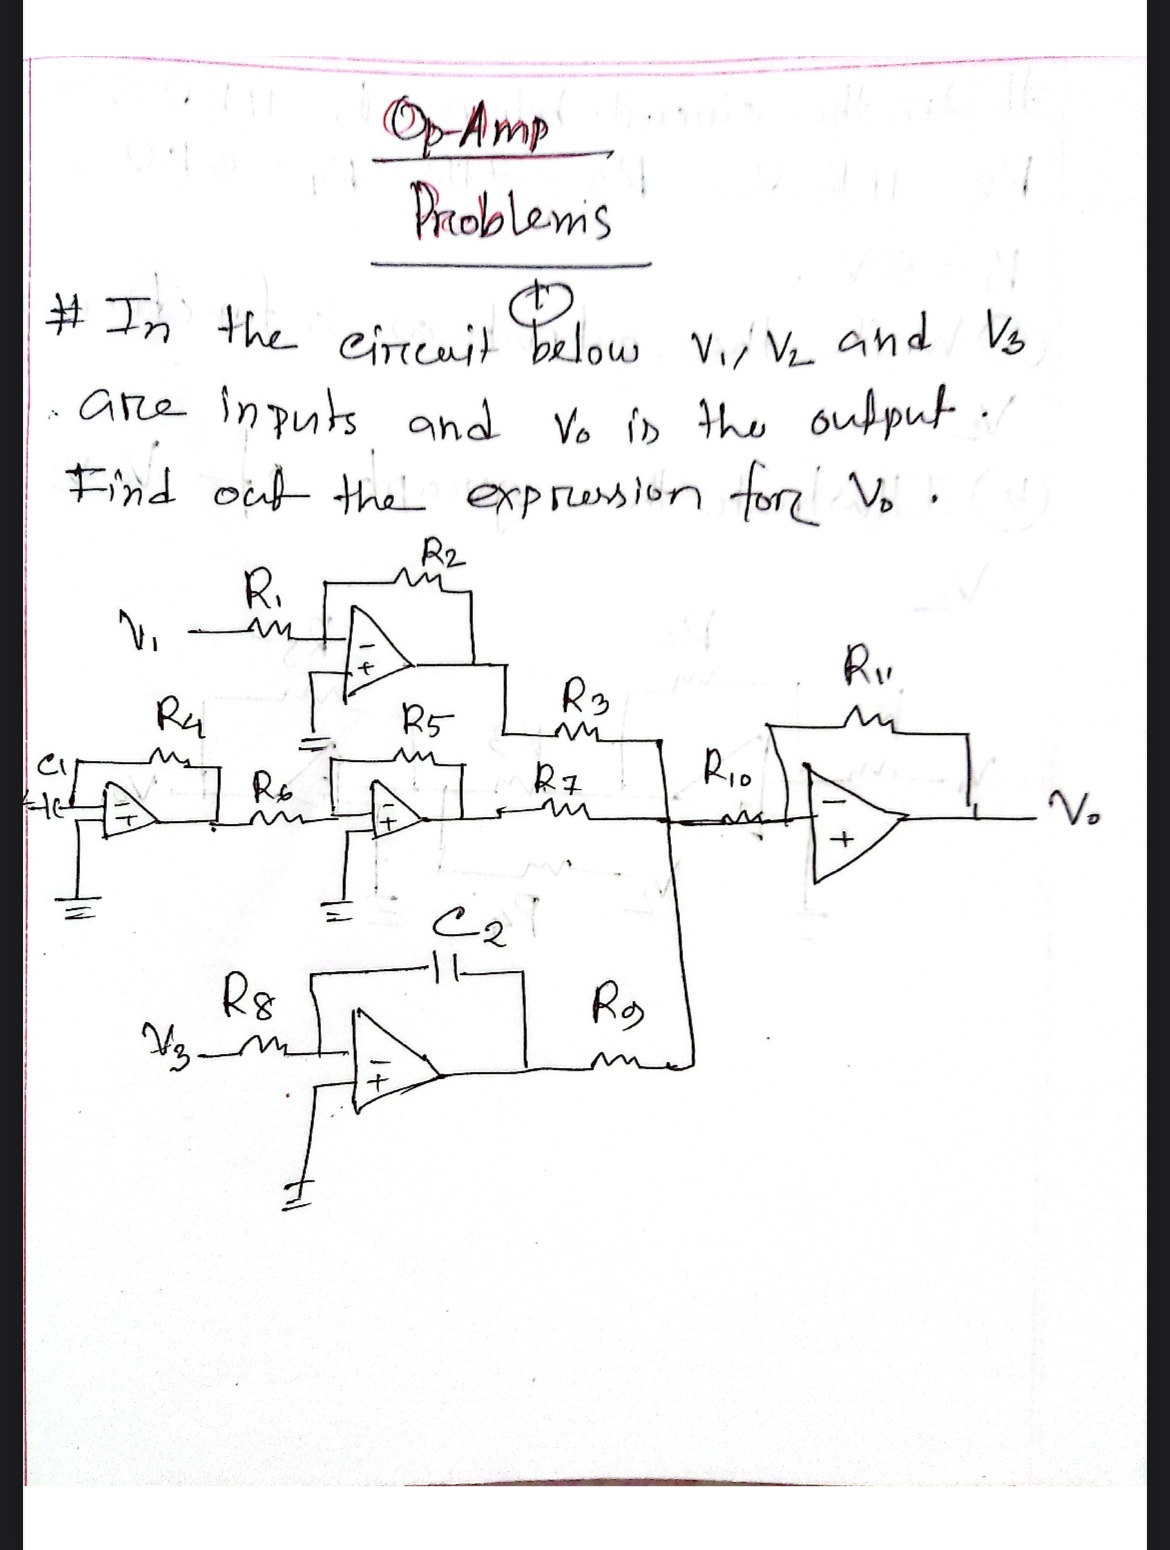 Op-Amp
Problems
1
# In the circuit below V1, V2 and V3
are inputs and Vo is the output.
Find out the expression for Vo.
R2
R1
V1
- +
R11
R3
R4
R5
C1
R6
R7
R10
- +
- +
-
+
Vo
C2
R8
R9
V3
- +